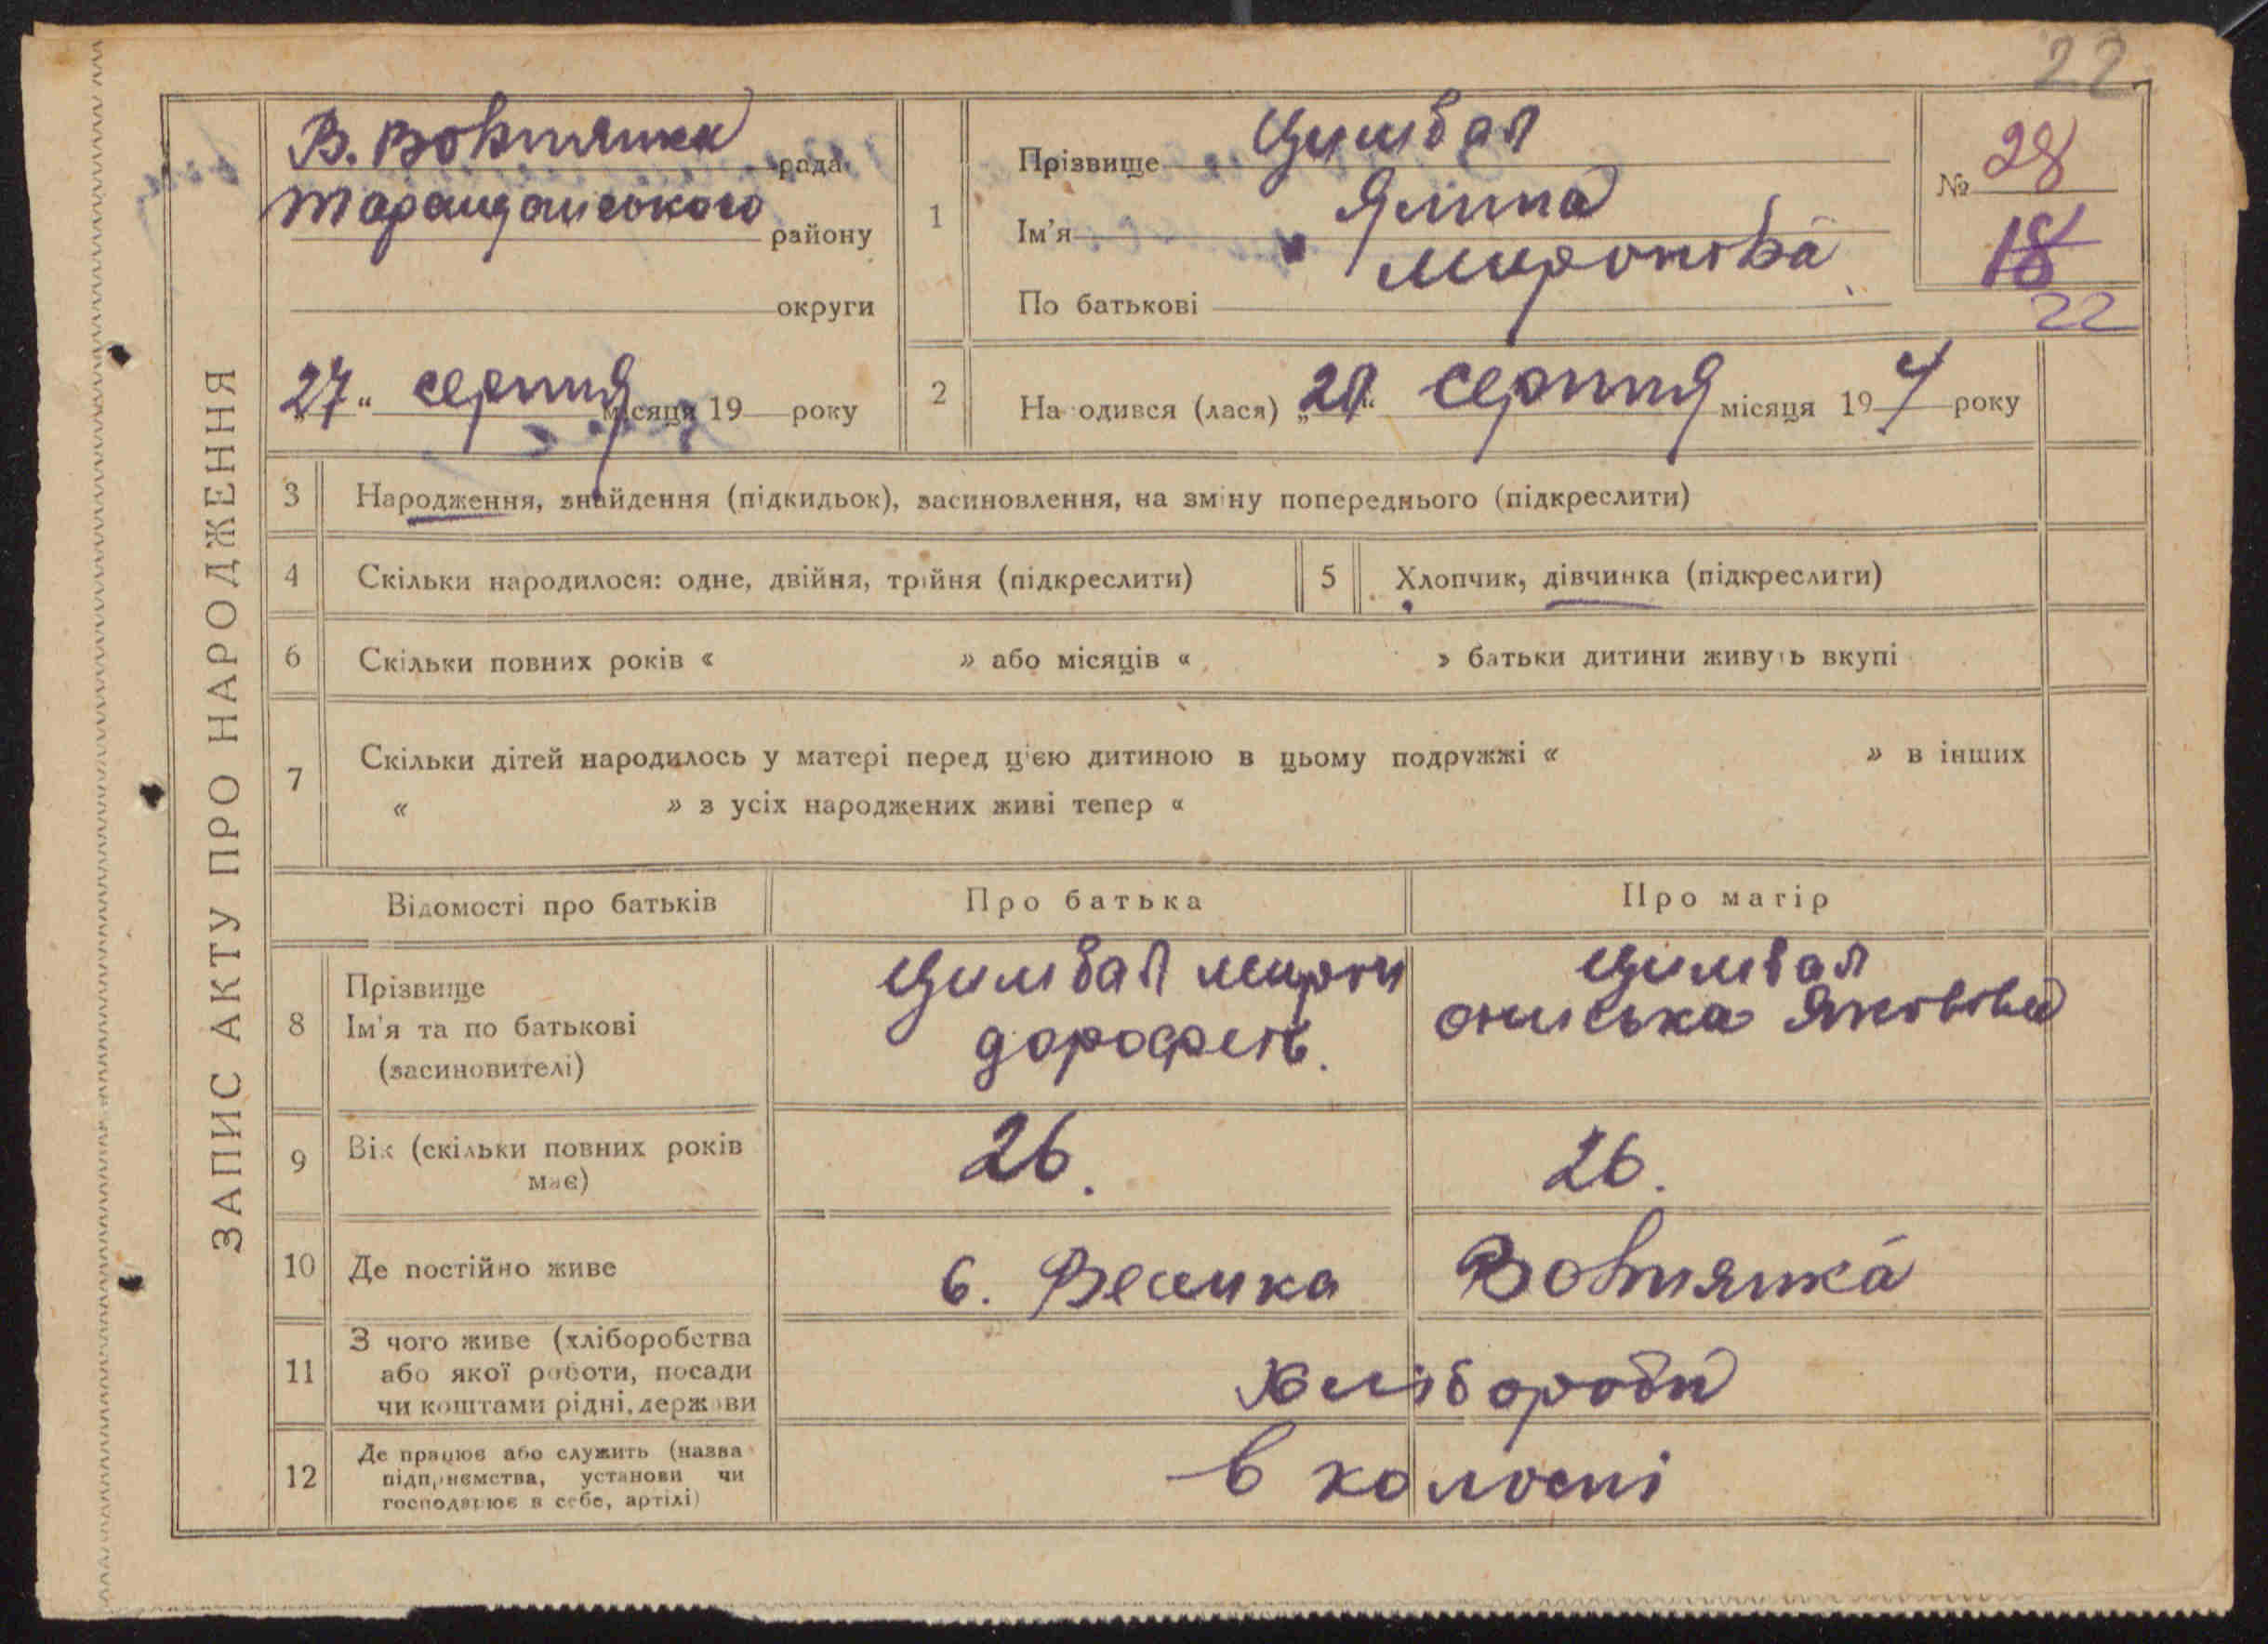 22
ЗАПИС АКТУ ПРО НАРОДЖЕННЯ
В. Вовнянка рада
Таращанського району
округи
„27“ серпня місяця 19 року
1
Прізвище Цимбал
Ім'я Яліна
По батькові Миронівна
№ 28
18
22
2
Народився (лася) „21“ серпня місяця 19 року
3 Народження, знайдення (підкидьок), засиновлення, на зміну попереднього (підкреслити)
4 Скільки народилося: одне, двійня, трійня (підкреслити)
5 Хлопчик, дівчинка (підкреслити)
6 Скільки повних років « » або місяців « » батьки дитини живуть вкупі
7 Скільки дітей народилось у матері перед цією дитиною в цьому подружжі « » в інших
« » з усіх народжених живі тепер «
Відомості про батьків Про батька Про матір
8 Прізвище
Ім'я та по батькові
(засиновителі)
Цимбал Мирон
Дорофеїв.
Цимбал
Ониська Яковівна
9 Вік (скільки повних років
має)
26. 26.
10 Де постійно живе
с. Велика Вовнянка
11 З чого живе (хліборобства
або якої роботи, посади
чи коштами рідні, держави
Хлібороби
12 Де працює або служить (назва
підприємства, установи чи
господарює в себе, артілі)
в колоспі